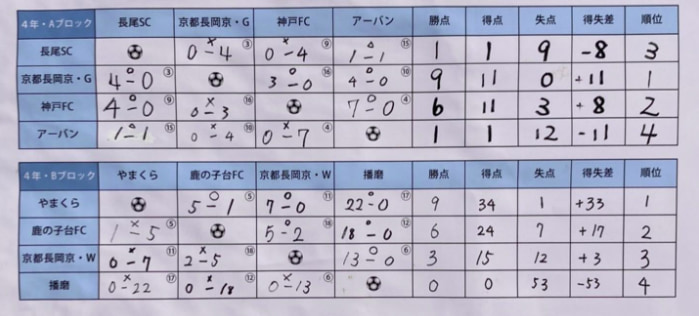 4年・Aブロック 長尾SC 京都長岡京・G 神戸FC アーバン 勝点 得点 失点 得失差 順位
長尾SC ⚽ × 0-4 ③ × 0-4 ⑨ △ 1-1 ⑮ 1 1 9 -8 3
京都長岡京・G ○ 4-0 ③ ⚽ ○ 3-0 ⑯ ○ 4-0 ⑩ 9 11 0 +11 1
神戸FC ○ 4-0 ⑨ × 0-3 ⑯ ⚽ ○ 7-0 ④ 6 11 3 +8 2
アーバン △ 1-1 ⑮ × 0-4 ⑩ × 0-7 ④ ⚽ 1 1 12 -11 4
4年・Bブロック やまくら 鹿の子台FC 京都長岡京・W 播磨 勝点 得点 失点 得失差 順位
やまくら ⚽ ○ 5-1 ⑤ ○ 7-0 ⑪ ○ 22-0 ⑰ 9 34 1 +33 1
鹿の子台FC × 1-5 ⑤ ⚽ ○ 5-2 ⑱ ○ 18-0 ⑫ 6 24 7 +17 2
京都長岡京・W × 0-7 ⑪ × 2-5 ⑱ ⚽ ○ 13-0 ⑥ 3 15 12 +3 3
播磨 × 0-22 ⑰ × 0-18 ⑫ × 0-13 ⑥ ⚽ 0 0 53 -53 4